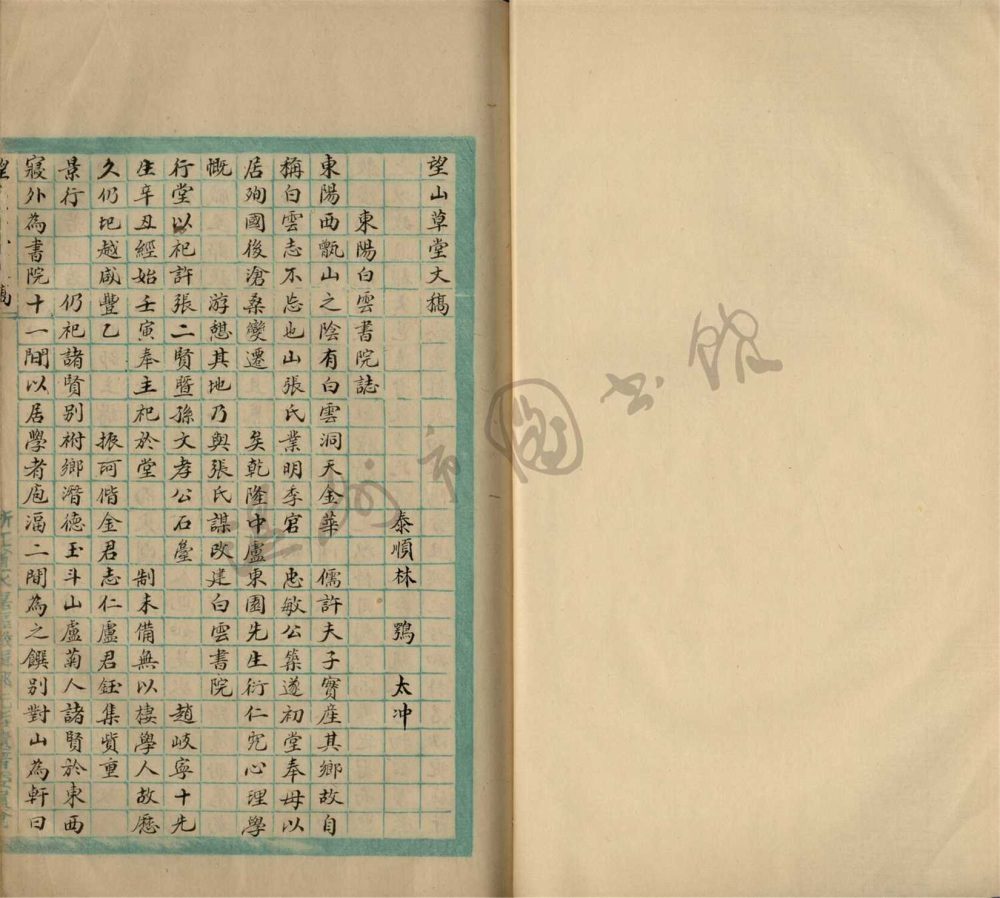 望山草堂文稿
泰順林鶚太冲
東陽白雲書院誌
東陽西甑山之陰有白雲洞天金華儒許夫子實產其鄉故自
稱白雲志不忘也山張氏業明季官忠敏公築遂初堂奉母以
居殉國後滄桑變遷矣乾隆中盧東園先生衍仁究心理學
慨游憩其地乃與張氏謀改建白雲書院
行堂以祀許張二賢暨孫文孝公石臺趙岐寧十先
生辛丑經始壬寅奉主祀於堂制未備無以棲學人故歷
久仍圯越咸豐乙振珂偕金君志仁盧君鈺集貲重
景行仍祀諸賢別祔鄉潛德玉斗山盧菊人諸賢於東西
寢外為書院十一間以居學者庖湢二間為之饌別對山為軒曰
温州市圖書館